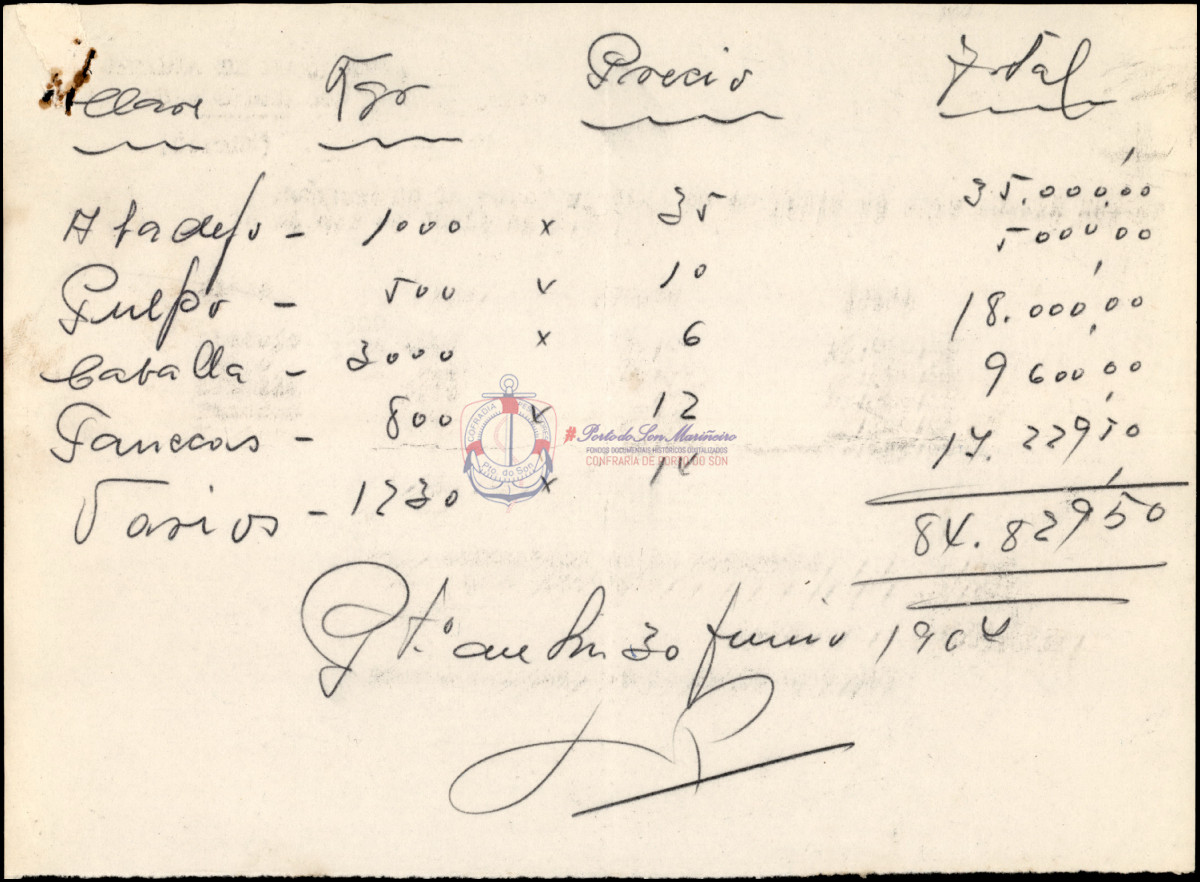 Clase Kgr Precio Total
Abadejo - 1000 x 35 35.000,00
Pulpo - 500 x 10 5000,00
Caballa - 3000 x 6 18.000,00
Fanecas - 800 x 12 9600,00
Varios - 1230 x 14 17.229,50
84.829,50
Ptº del Son 30 Junio 1964
COFRADIA
Pto. do Son
#Porto do Son Mariñeiro
FONDOS DOCUMENTAIS HISTÓRICOS DIXITALIZADOS
CONFRARÍA DE PORTO DO SON